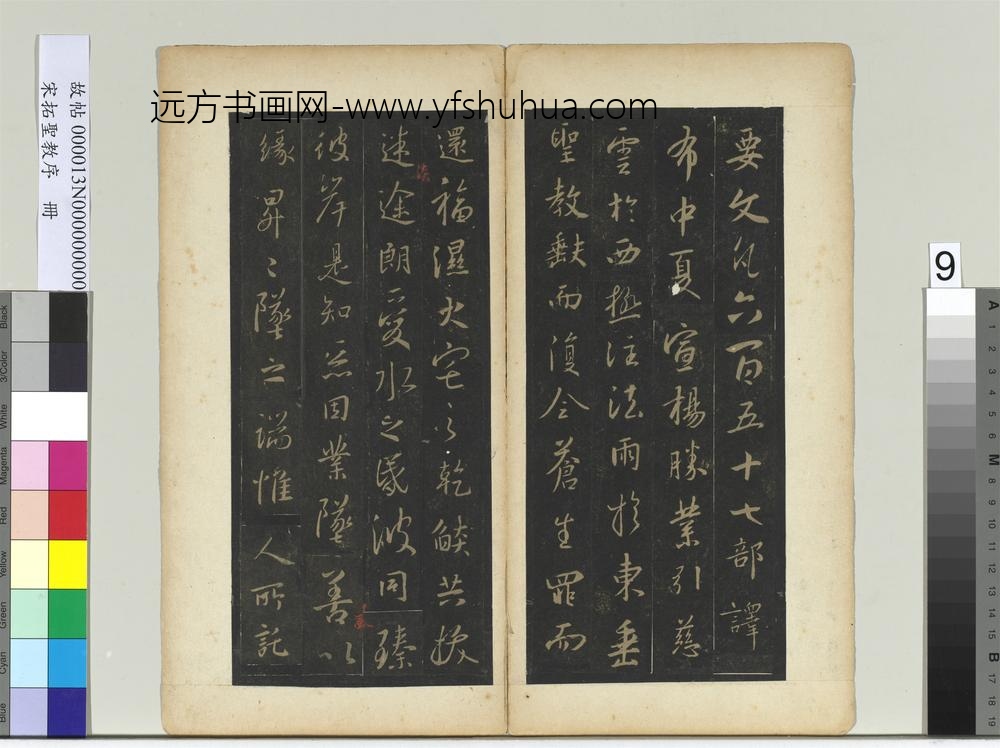 远方书画网-www.yfshuhua.com
故帖 000013N000000000
宋拓聖教序 冊
9
要文凡六百五十七部譯
布中夏宣楊勝業引慈
雲於西極注法雨於東垂
聖教缺而復全蒼生罪而
還福濕火宅之乾焰共拔
迷途朗愛水之昏波同臻
彼岸是知惡因業墜善以
緣昇昇〻墜之端惟人所託
Black
3/Color
White
Magenta
Red
Yellow
Green
Cyan
Blue
A
1
2
3
4
5
6
M
8
9
10
11
12
13
14
15
B
17
18
19